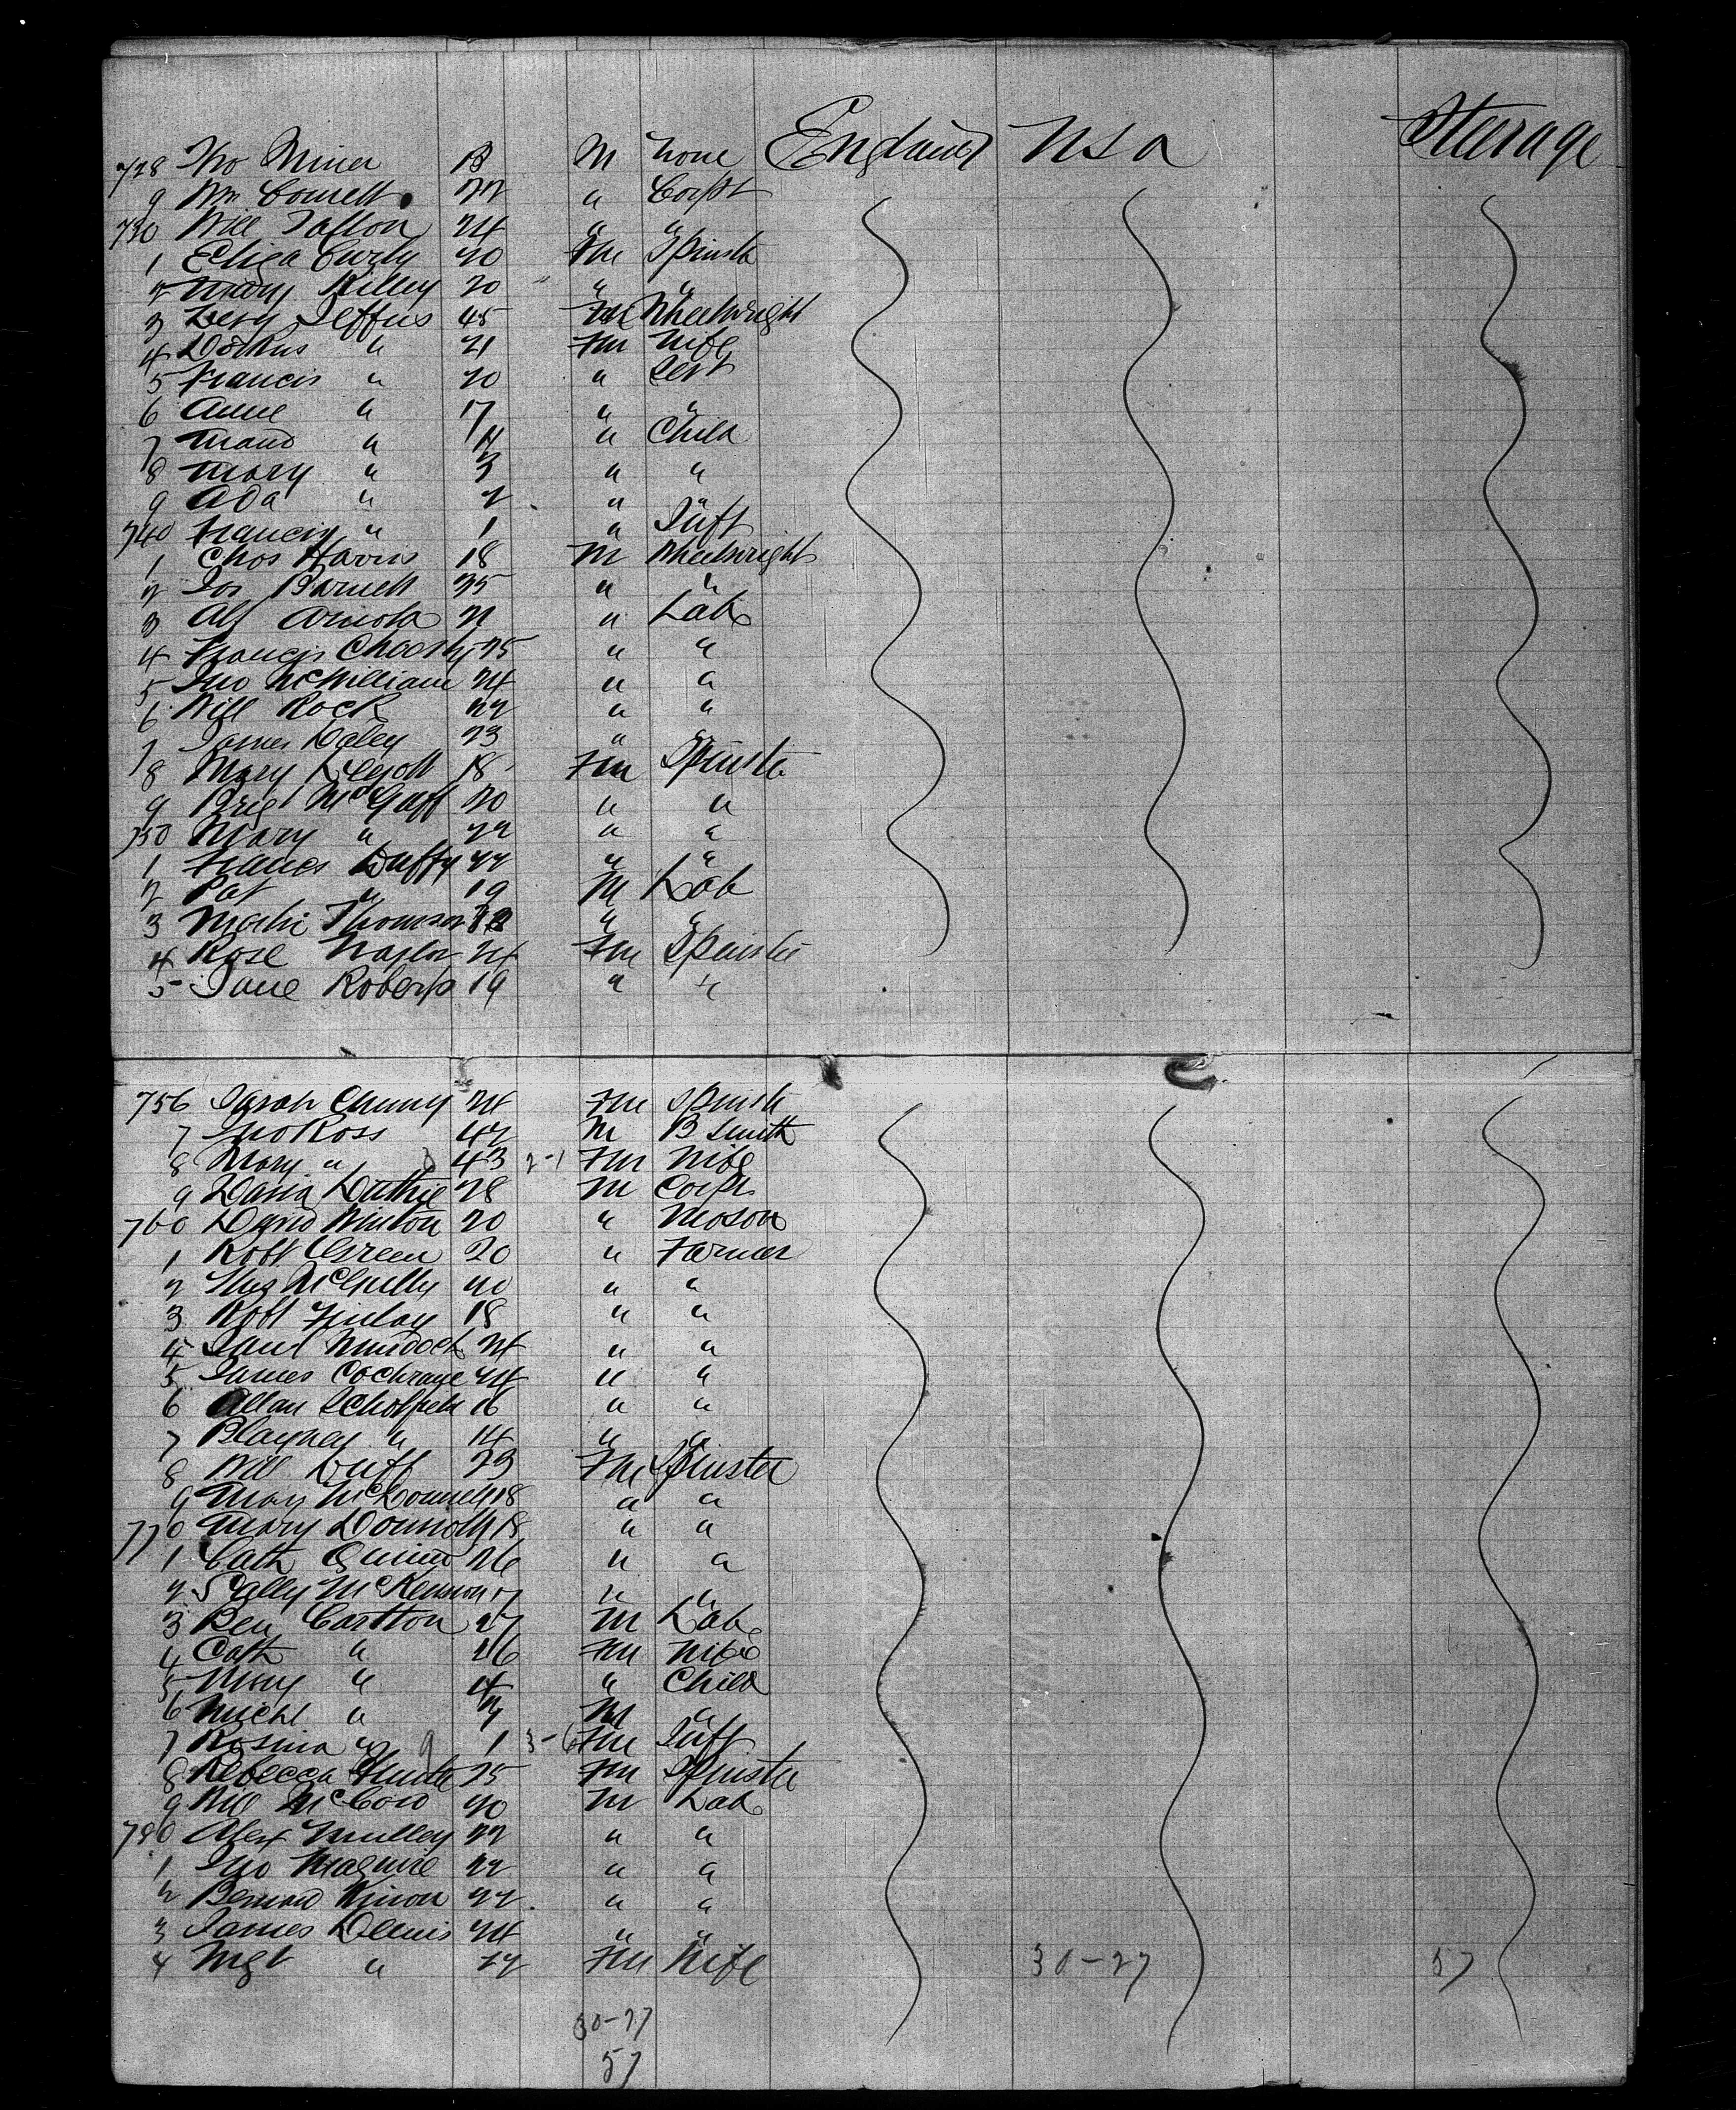 England USA Steerage
728 Tho Miner 13 M None
9 Wm Cornell 22 " Carpt
730 Will Tallon 24 " "
1 Eliza Curly 20 Fm Spinstr
2 Mary Kelley 20 " "
3 Levy Jeffus 45 M Wheelwright
4 Dorkus " 21 Fm Wife
5 Francis " 20 " Sert
6 Anne " 17 " "
7 Maud " 4 " Child
8 Mary " 3 " "
9 Ada " 2 " "
740 Francis " 1 " Inft
1 Chas Harris 18 M Wheelwright
2 Jos Barnett 25 " "
3 Alf Arnold 21 " Lab
4 Francis 25 " "
5 Jno McWilliam 24 " "
6 Will Rock 22 " "
7 James Daley 23 " "
8 Mary 18 Fm Spinster
9 Brigt McGuff 20 " "
750 Mary " 22 " "
1 Frances Duffy 22 " "
2 Pat " 19 M Lab
3 Thomson " "
4 Rose Naylor 24 Fm Spinster
5 Jane Roberts 19 " "
756 Sarah 24 Fm Spinstr
7 Jno Ross 42 M B Smith
8 Mary " 43 2-1 Fm Wife
9 David Duthie 28 M Carptr
760 David Winton 20 " Mason
1 Robt Green 20 " Farmer
2 Thos 20 " "
3 Robt Finlay 18 " "
4 Saml Murdock 24 " "
5 James Cochrane 24 " "
6 Allan Scholfield 16 " "
7 Blayney " 14 " "
8 Will Duff 23 Fm Spinster
9 Mary McDonnell 18 " "
770 Mary Donnolly 18 " "
1 Cath Quinn 26 " "
2 Sally McKennon 17 " "
3 Ben Carlton 27 M Lab
4 Cath " 26 Fm Wife
5 Mary " 4 " Child
6 Michl " 2 M "
7 Rosina " 9 1 3-6 Fm Inft
8 Rebecca Hunter 25 Fm Spinster
9 Will McCord 20 M Lab
780 Alex Mulley 22 " "
1 Jno Maguire 22 " "
2 Bernard 22 " "
3 James Dennis 24 " "
4 Mgt " 22 Fm Wife 30-27 57
30-27
57